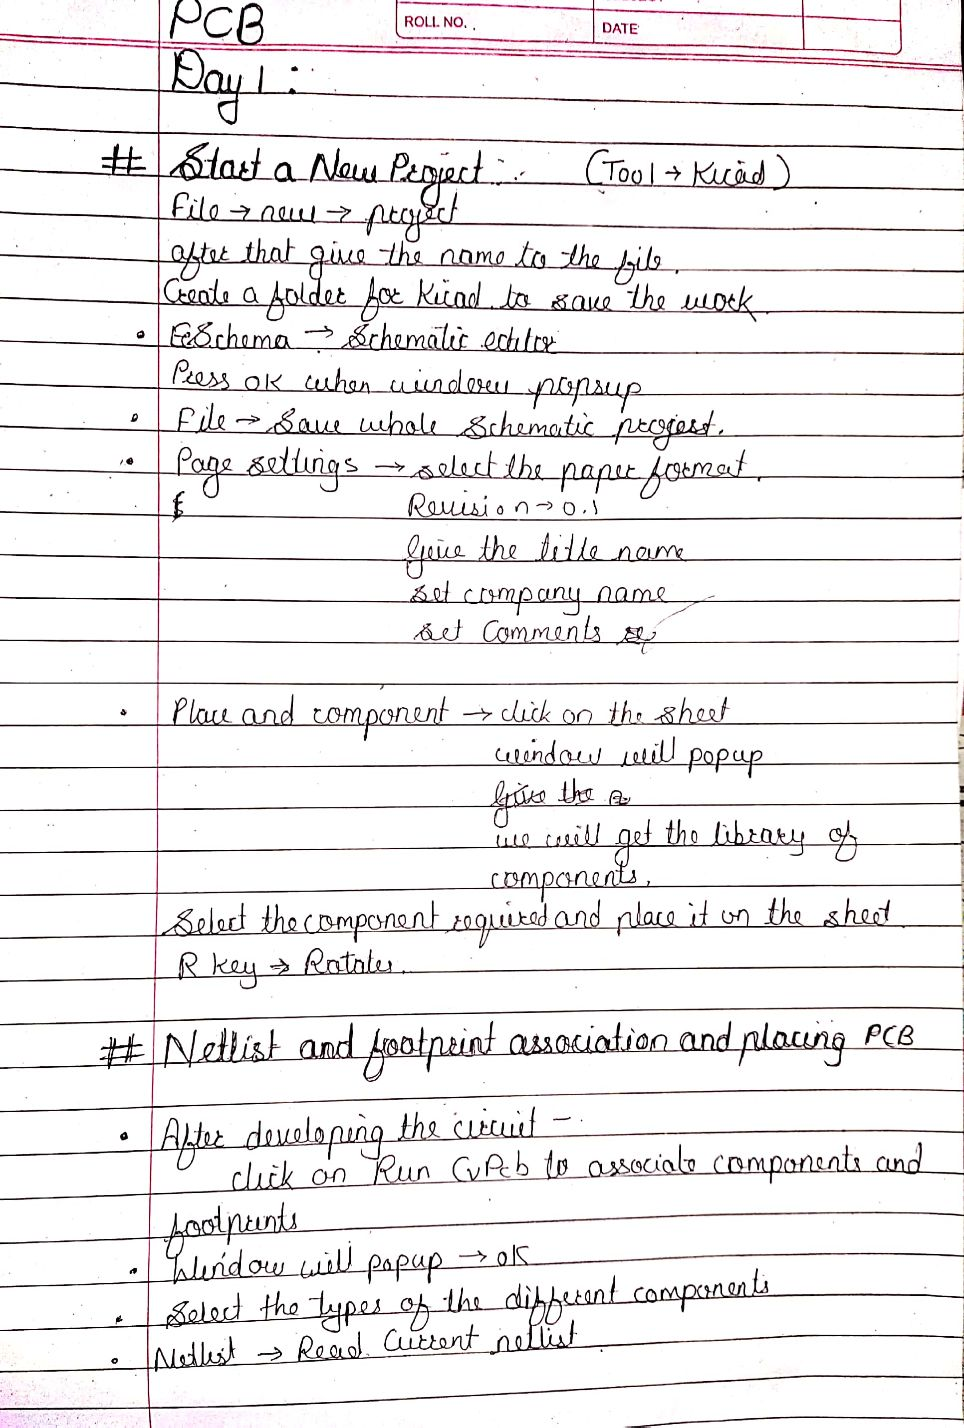 PCB
ROLL NO.
DATE
Day 1 :
# Start a New Project :- (Tool → Kicad)
File → new → project
after that give the name to the file.
Create a folder for Kicad to save the work
• EeSchema → Schematic editor
Press OK when window popsup
• File → Save whole Schematic project.
• Page settings → select the paper format.
Revision → 0.1
Give the title name
set company name
set Comments
• Place and component → click on the sheet
window will popup
Give the
we will get the library of
components,
Select the component required and place it on the sheet.
R key → Rotates.
# Netlist and footprint association and placing PCB
• After developing the circuit –
click on Run CvPcb to associate components and
footprints
• Window will popup → OK
• Select the types of the different components
• Netlist → Read Current netlist